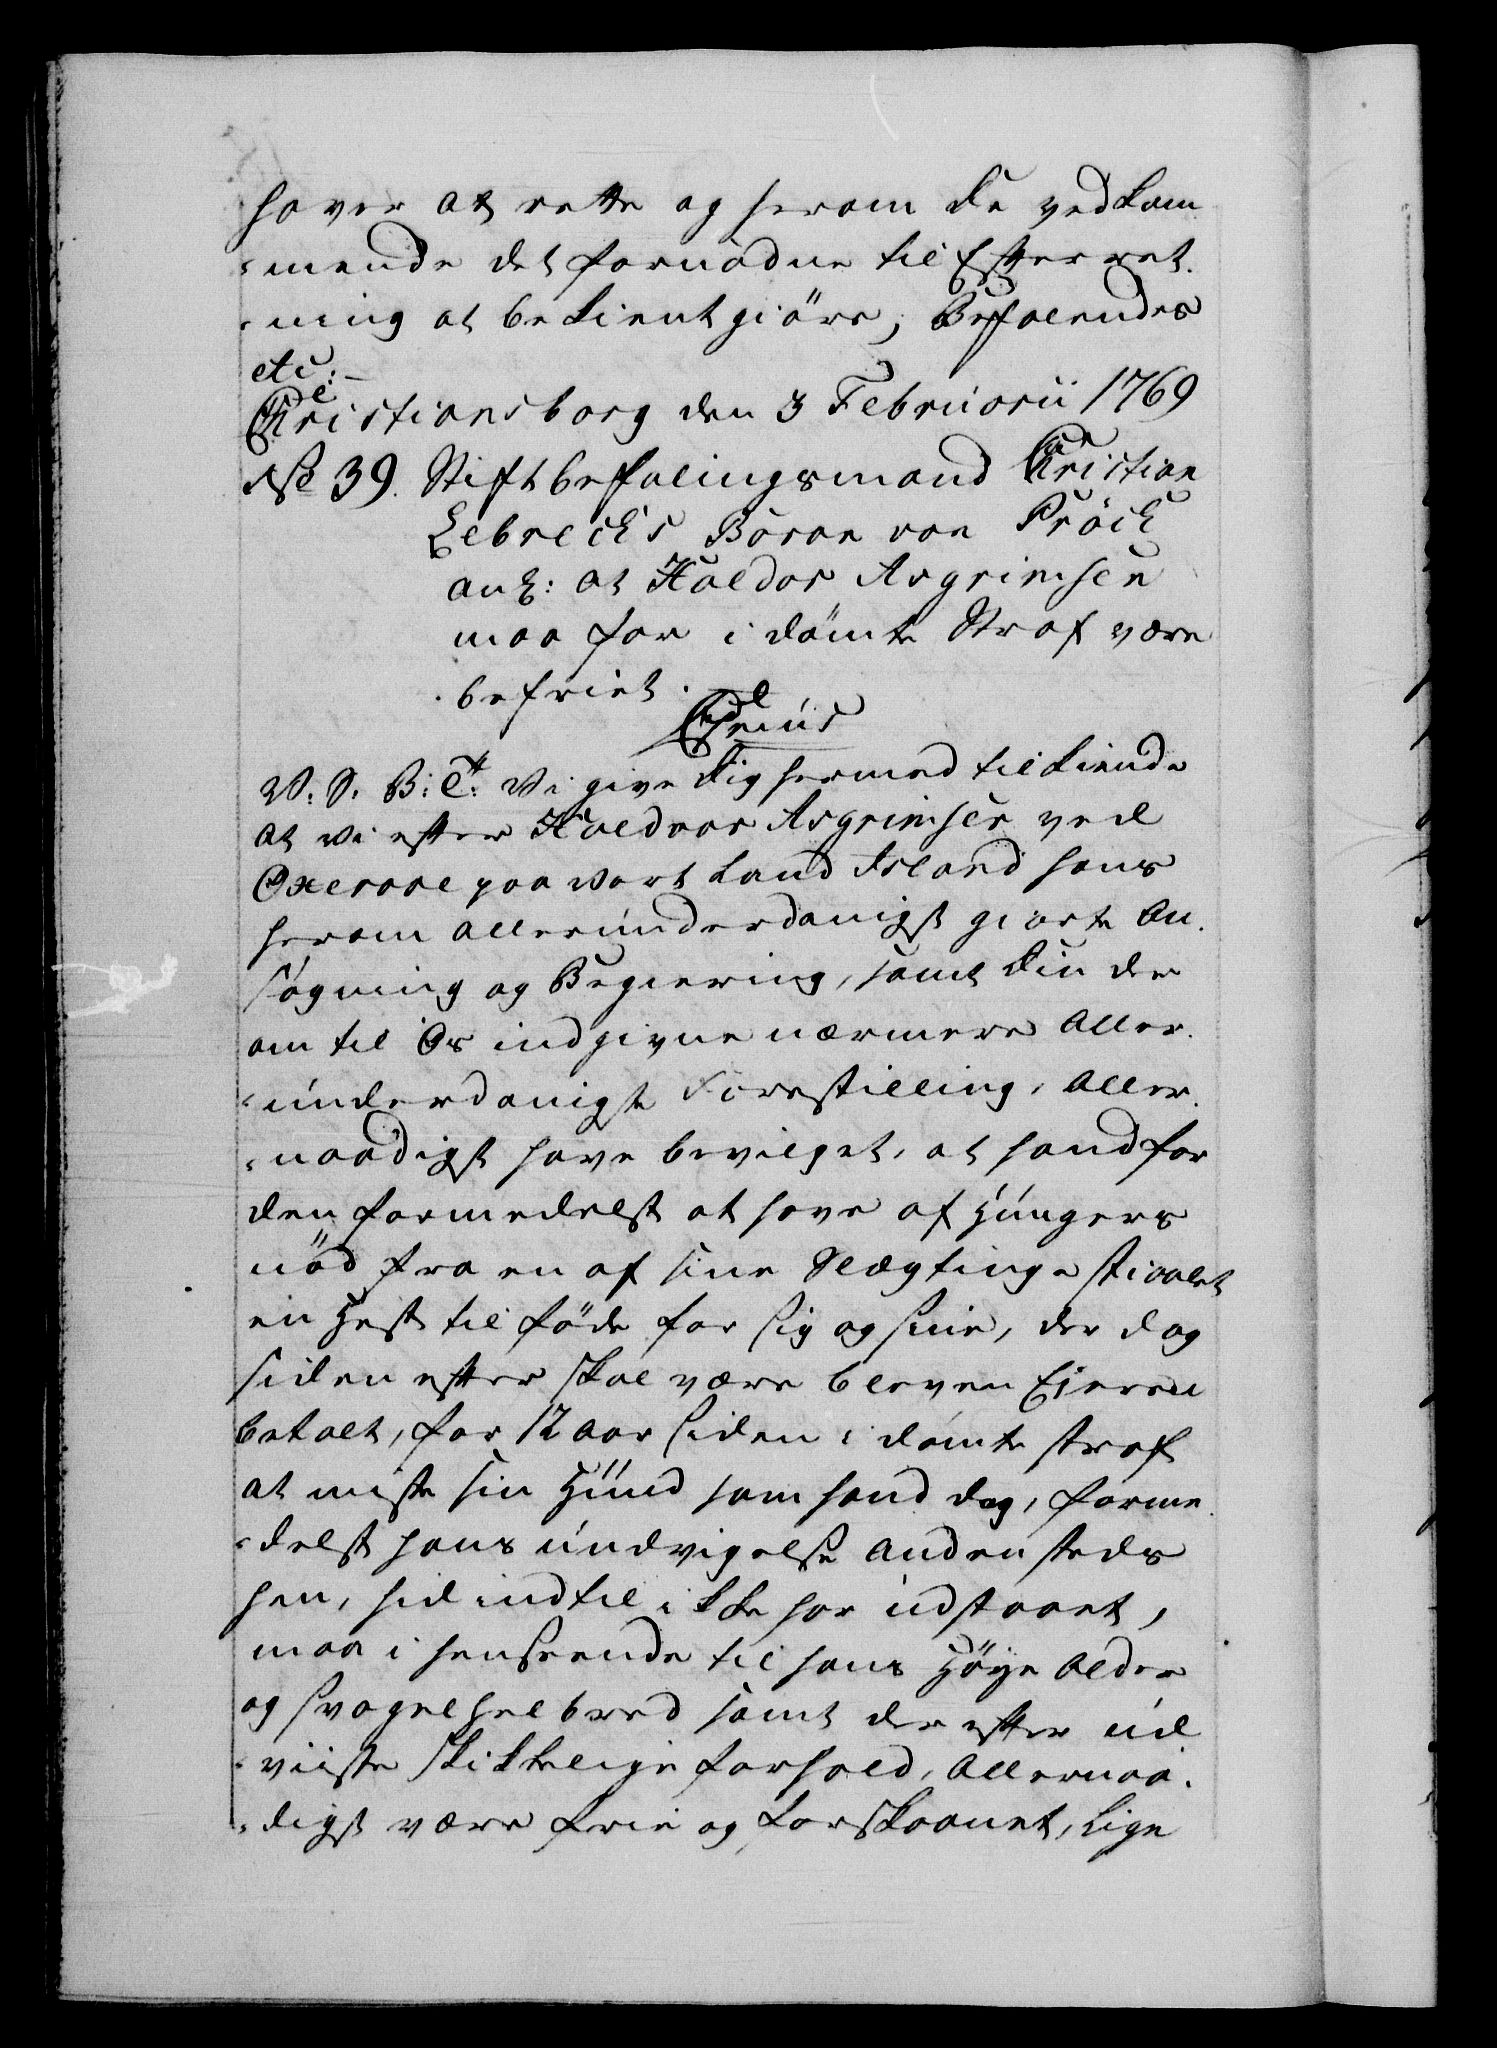 haver at rette og herom de vedkom-
-mende det fornødne til Efterret-
-ning at bekientgiöre; Befalendes
etc:
Christiansborg den 3 Februarii 1769
No 39. Stiftbefalingsmand Christian
Lebrecht Baron von Pröck
anl: at Haldor Asgrimsen
maa for idömte Straf være
befriet.
Genus
V. S. B: T: Vi give dig hermed tilkiende
at vi efter Haldoor Asgrimsen ved
Oxeraae paa vort Land Island hans
herom allerunderdanigst giorte An-
søgning og Begiering, samt din der
om til Os indgivne nærmere Aller-
-underdanigste Forestilling, Aller-
-naadigst have bevilget, at hand for
den formedelst at have af Hungers
nöd fra en af sine Slægtinge stiaalet
en Hest til föde for sig og sine, der dog
siden efter skal være bleven Eieren
betalt, for 12 Aar siden idömte straf
at miste sin Hund som hand dog, forme-
-delst hans undvigelse andensteds
hen, hid indtil ikke har udstaaet,
maa i henseende til hans Höye Alder
og svage helbred samt der efter ud
-viiste skikkelige forhold, Allernaa-
-digst være frie og forskaanet, Lige